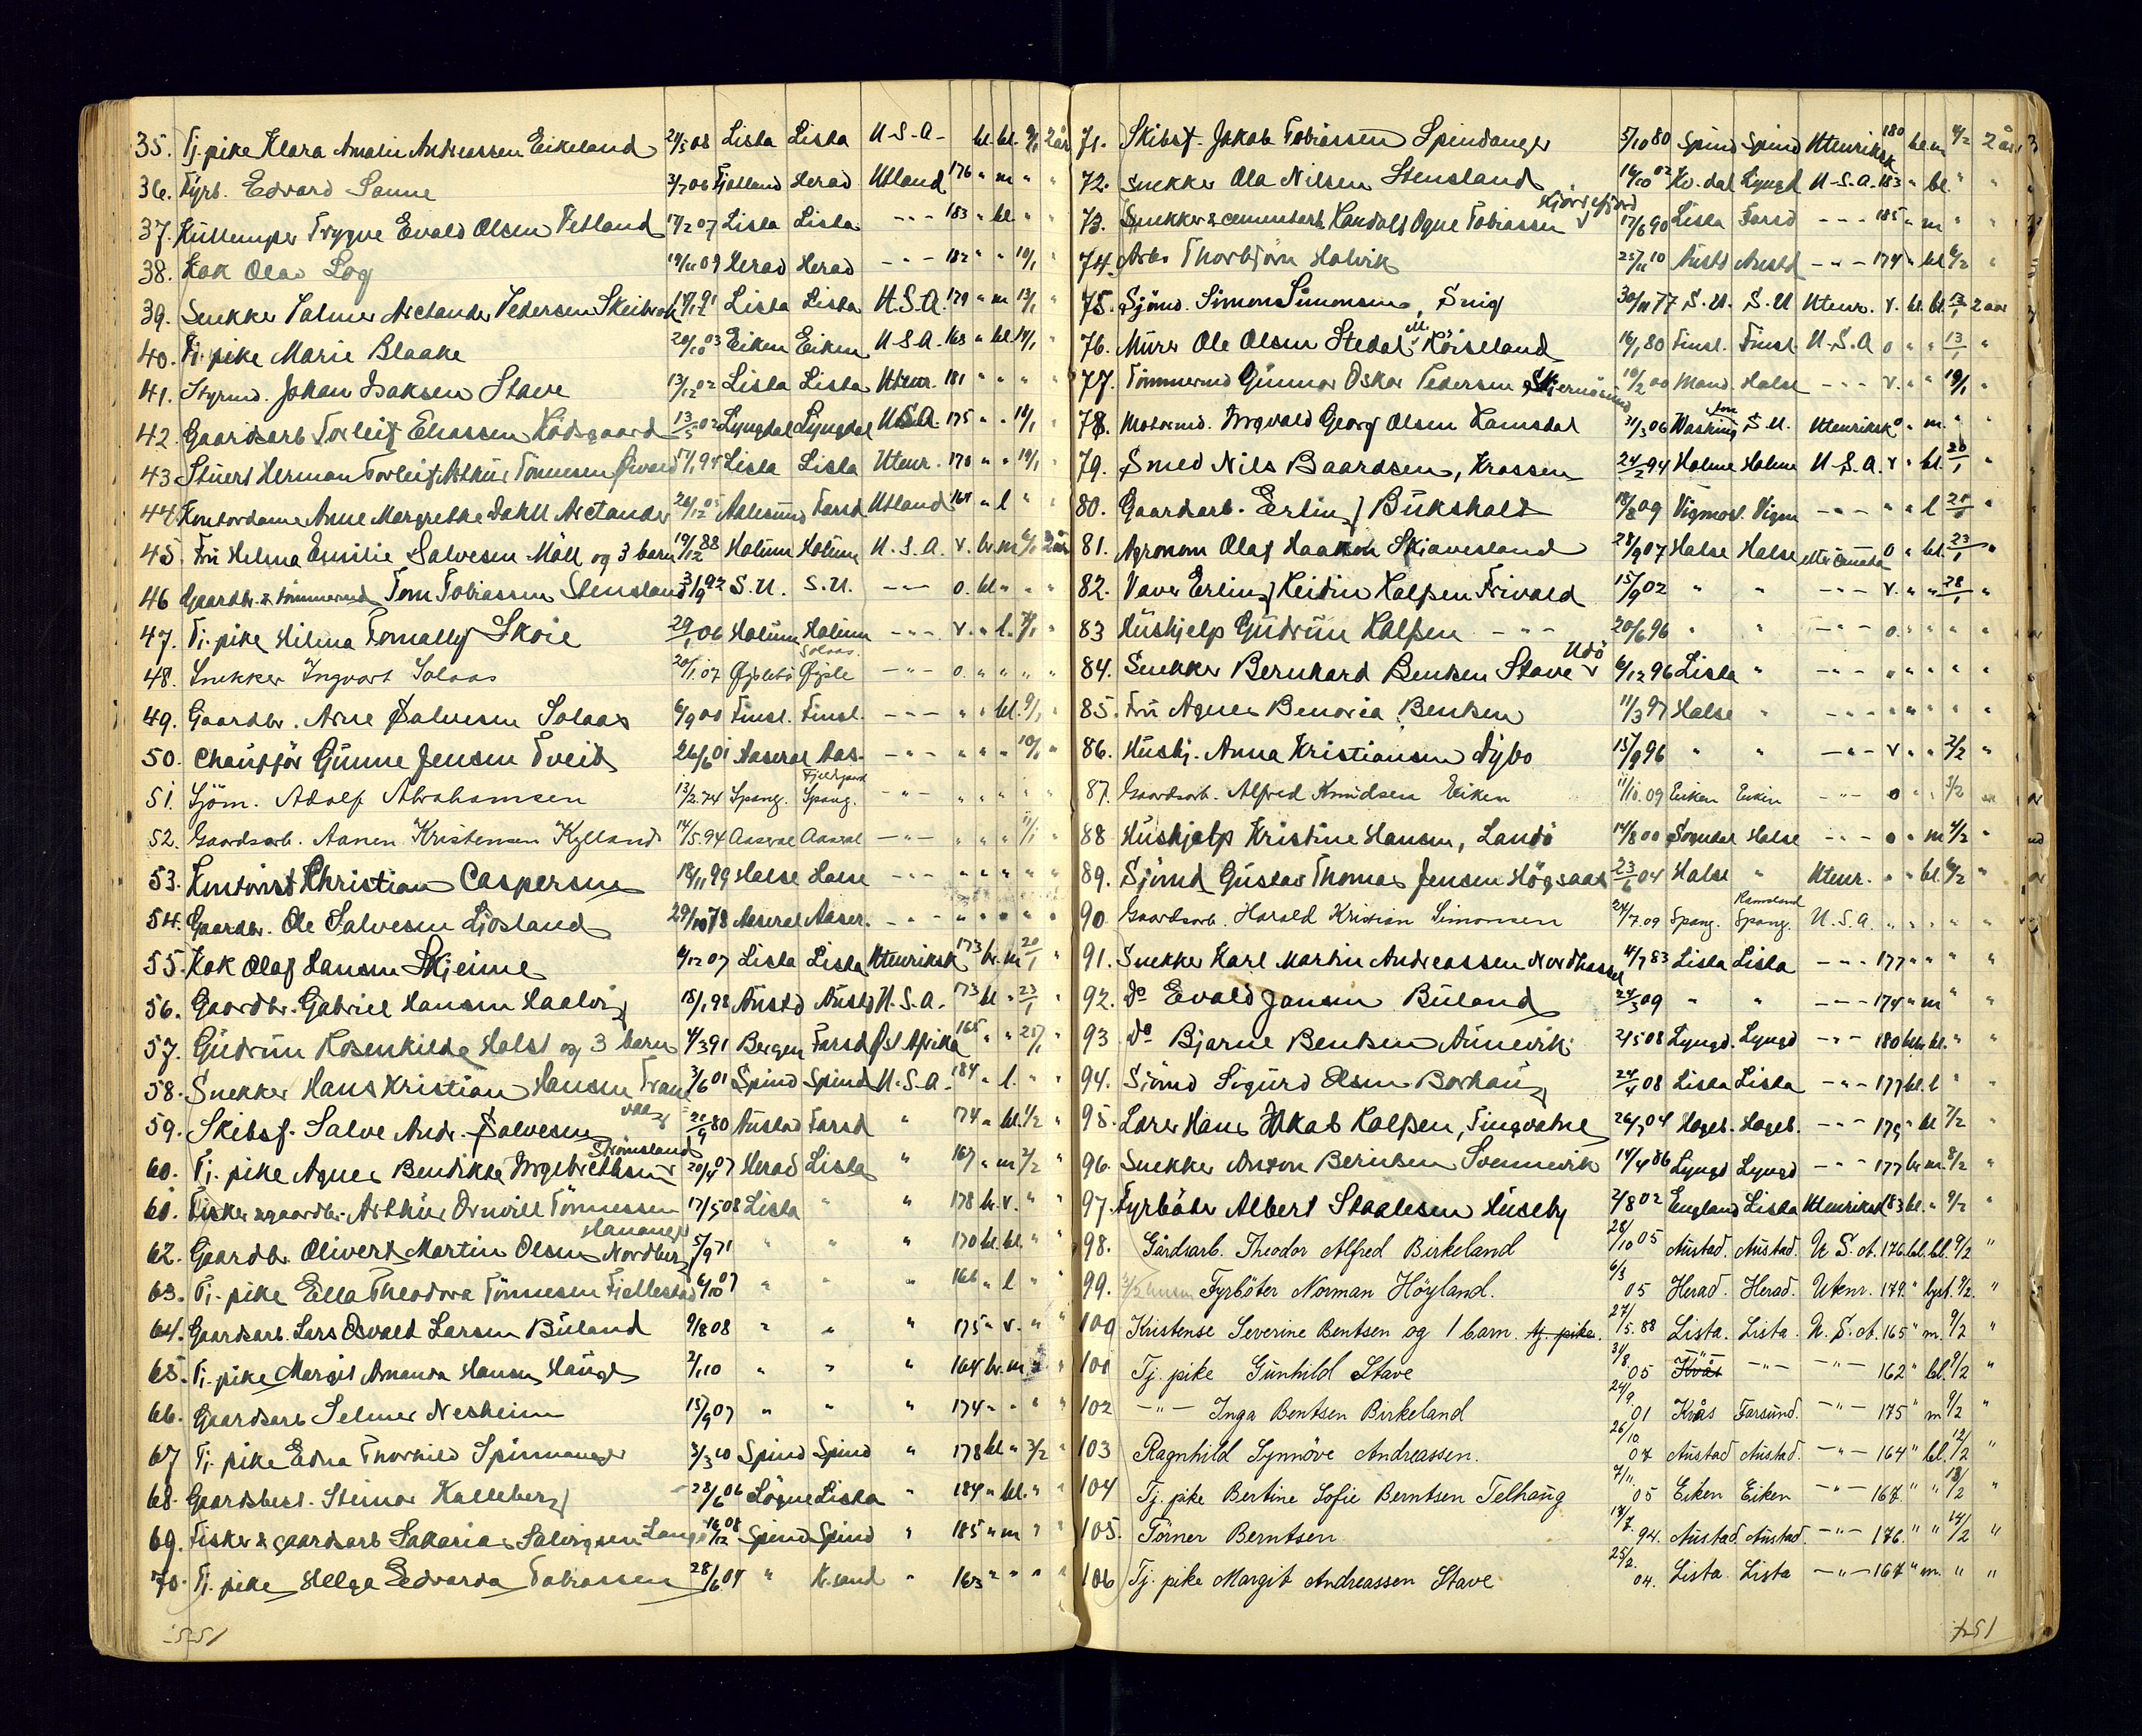 35. Tj. pike Klara Amalie Andreassen Eikeland 24/5 08 Lista Lista U.S.A. bl. bl. 2 år
36. Fyrb. Edvard Sanne 3/7 06 Fjotland Herad Utland 176 " m " "
37. Trygve Evald Olsen Vetland 17/2 07 Lista Lista - - - 183 " bl. " "
38. Kok Olav Log 19/11 09 Herad Herad - - - 182 " " 10/1 "
39. Snekker Palmer Arctander Pedersen Skeibrok Lista Lista U.S.A. 179 " m 13/1 "
40. Tj. pike Marie Blaake 20/10 03 Eiken Eiken U.S.A. 163 " bl. 14/1 "
41. Styrmd. Johan Isaksen Stave 13/12 02 Lista Lista Utenr. 181 " " " "
42. Gaardsarb Torleif Eliassen Rödsgaard 13/5 02 Lyngdal Lyngdal U.S.A. 175 " " 18/1 "
43 Stuert Herman Torleif Arthur Tönnesen 94 Lista Lista Utenr. 170 " " 19/1 "
44. Kontordame Anne Margrethe Dahll Arctander 26/12 05 Aalesund Farsd Utland 164 " l " "
45. Fru Helma Emilie Salvesen Möll og 3 barn 19/12 88 Holum Holum U.S.A. v. br. m 6/1 2 år
46 Gaardbr. & tömmermd Tom Tobiassen Stensland 3/9 92 S.U. S.U. - - - o. bl. " " "
47. Tj. pike Hilma Tomally Skoie 29/1 06 Holum Holum - - - v. " l. 7/1 "
48. Snekker Ingvart Solaas 20/1 07 Øyslebö Øysle Solaas - " - o. " " " "
49. Gaardbr. Arne Salvesen Solaas 6/9 00 Finsl. Finsl. - - - " " bl. 9/1 "
50. Chaufför Gunne Jensen Tveit 26/6 01 Aaseral Aas. - " - " " " 10/1 "
51. Sjöm. Adolf Abrahamsen 13/2.74 Spang. Spang. Fjeldsgaard - " - " " " " "
52. Gaardsarb. Aanen Kristensen Kylland 14/5.94 Aaseral Aaseral - " - " " " 11/1 "
53. Kontorist Christian Caspersen 18/11 99 Halse Halse - " - " " " " "
54. Gaardbr. Ole Salvesen Ljosland 29/10 78 Aaseral Aaser. - " - " " " " "
55. Kok Olaf Hansen Skjeime 6/12 07 Lista Lista Utenriksk 173 br. m 20/1 "
56. Gaardbr. Gabriel Hansen Haalvig 18/1 98 Austd Austd U.S.A. 173 bl " 23/1 "
57. Gudrun Rosenkilde Holst og 3 barn 4/3 91 Bergen Farsd Øst Afrika 165 " " 25/1 "
58. Snekker Hans Kristian Hansen Tranevaag 3/6 01 Spind Spind U.S.A. 184 " l. " "
59. Skibsf. Salve Andr. Salvesen 21/9 80 Austad Farsd " 174 " bl. 1/2 "
60. Tj. pike Agnes Bendikte Ingebrethsen Strømsland 20/4 07 Herad Lista " 167 " m 2/2 "
61. Fisker & gaardbr. Arthur Ornvill Tönnessen 17/5 08 Lista " " 178 br. v. " "
62. Gaardbr. Olivert Martin Olsen Nordberg Hananger 5/9 71 " " " 170 bl. bl. " "
63. Tj. pike Ella Theodora Tönnesen Fjellestad 6/10 07 " " " 166 " l " "
64. Gaardsarb. Lars Osvald Larsen Büland 9/8 08 " " " 175 " v. " "
65. Tj. pike Margit Amanda Hansen Hauge 2/1 10 " " " 164 br. m. " "
66. Gaardsarb Selmer Nesheim 15/9 07 " " " 174 " " " "
67 Tj. pike Edna Thorhild Spinnanger 3/3 10 Spind Spind " 178 bl " 3/2 "
68. Gaardsbest. Steinar Kalleberg 28/6 06 Lögne Lista " 184 " bl. " "
69. Fisker & gaardsarb Sakarias Salvigsen Lange 16/12 08 Spind Spind " 185 " m " "
70. Tj. pike Helga Edvarda Tobiassen 28/6 04 " Kr.sand " 163 " " " "
1551
71. Skibsf. Jakob Tobiassen Spindanger 5/10 80 Spind Spind Utenriksk 180 bl. m 4/2 2 år
72. Snekker Ola Nilsen Stensland 16/10 02 Kv.dal Lyngd U.S.A. 183 " bl. " "
73. Snekker & cementarb. Randulf Ogne Tobiassen Kjörrefjord 17/6 90 Lista Farsd - - - 185 " m " "
74. Arb. Thorbjörn Halvik 25/11 10 Austd Austd - " - 174 " bl 6/2 "
75. Sjömd. Simon Simonsen, Snig 30/11 77 S.U. S.U. Utenr. v. bl. bl. 13/1 2 aar
76. Murer Ole Olsen Stedal Röiseland 16/1 80 Finsl. Finsl U.S.A o " " 13/1 "
77. Tömmermd Gunnar Oskar Pedersen Skjernösund 10/2 00 Mand. Halse - - - v. " " 19/1 "
78. Motormd. Ingvald Georg Olsen Ramsdal 31/3 06 Washington S.U. Utenriksk o " m. " "
79. Smed Nils Baardsen, Krossen 24/2 94 Holme Holme U.S.A. v " bl. 20/1 "
80. Gaardsarb. Erling Bukshald 18/8 09 Vigmost. Vigm - " - " " l 21/1 "
81. Agronom Olaf Haakon Skjævesland 28/9 07 Halse Halse Canada o " bl. 23/1 "
82. Vaver Erling Heidin Kalfsen Frivold 15/9 02 " " - " - v. " " 28/1 "
83 Hushjelp Gudrun Kalfsen - " - 20/6 96 " " - " - o. " " " "
84. Snekker Bernhard Bentsen Stave Udö 6/12 96 Lista " - " - " " " " "
85. Fru Agnes Benoria Bentsen 11/3 97 Halse " - " - " " " " "
86. Hushj. Anna Kristiansen Dybo 15/9 96 " " - " - v " " 2/2 "
87. Gaardsarb. Alfred Knudsen Eiken 11/10.09 Eiken Eiken - " - o " " 3/2 "
88 Hushjelp Kristine Hansen, Landö 14/8 00 Sogndal Halse - " - o " m 4/2 "
89. Sjömd Gustav Thomas Jensen Högsaas 23/6 04 Halse " Utenr. " " bl. 6/2 "
90 Gaardsarb. Harald Kristian Simonsen 24/7.09 Spang. Spang. Ramsland U.S.A. " " " " "
91. Snekker Karl Martin Andreassen Nordhassel 4/7 83 Lista Lista - " - 177 " " " "
92. Do Evald Jansen Büland 24/3 09 " " - - - 174 " m " "
93 Do Bjarne Bentsen Aunevik 2/5 08 Lyngd. Lyngd - " - 180 bl. " "
94. Sjömd Sigurd Olsen Borhaug 24/4 08 Lista Lista - " - 177 bl. l " "
95. Lærer Hans Jakob Kalfsen, Tingvatne 26/7 04 Hægeb. Hægeb. - " - 179 " bl 7/2 "
96. Snekker Anton Berntsen Svennevik 14/4 86 Lyngd Lyngd - " - 177 br m. 8/2 "
97. Fyrböter Albert Staalesen Huseby 2/8 02 England Lista Utenriksk 183 bl. " 9/2 "
98. Gårdsarb. Theodor Alfred Birkeland 28/10 05 Austad. Austad. U.S.A. 176 bl. bl. 9/2 "
99. Fyrböter Norman Höyland. 6/3 05 Herad. Herad. Utenr. 179. " lyst. 9/2. "
100 Kristense Severine Bentsen og 1 barn. tj. pike. 27/5. 88 Lista. Lista. U.S.A. 165 " m. 9/2 "
101 Tj. pike Gunhild Stave 31/8 05 Kvås - " - - " - - " - 162 " bl. 9/2 "
102 - " - Inga Bentsen Birkeland 24/9. 01 Kvås Farsund. - " - 175 " m 9/2 "
103 Ragnhild Synnöve Andreassen. 26/10 07 Austad Austad. - " - 164 " bl. 12/2 "
104 Tj. pike Bertine Sofie Berntsen Telhaug 7/11. 05 Eiken Eiken - " - 167. " " 13/2 "
105. Törner Berntsen 17/7. 94. Austad. Austad. - " - 176. " " 14/2 "
106 Tj. pike Margit Andreassen Stave 25/2. 04. Lista. Lista - " - 167 " m. " "